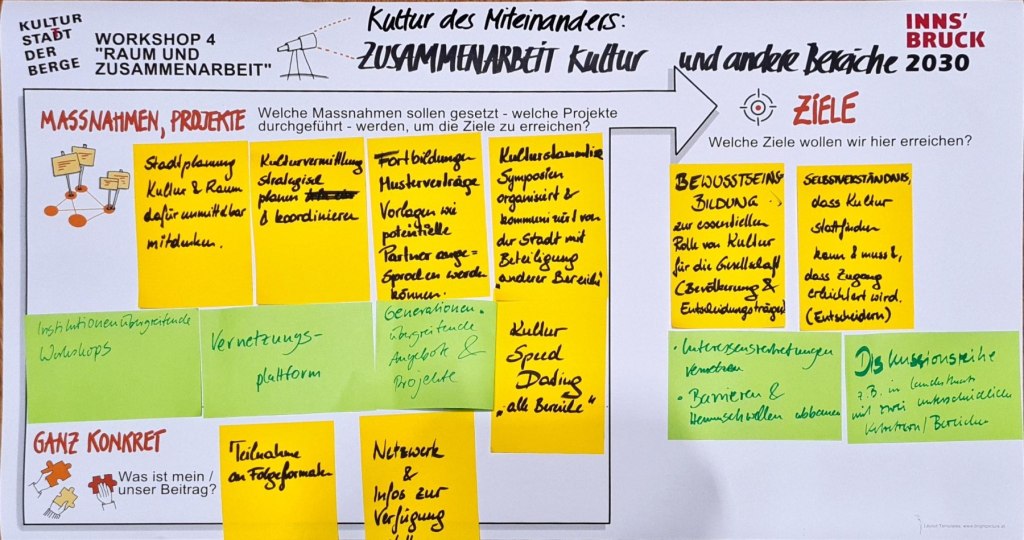 KULTUR
STADT
DER
BERGE
WORKSHOP 4
"RAUM UND
ZUSAMMENARBEIT"
Kultur des Miteinanders:
ZUSAMMENARBEIT Kultur und andere Bereiche
INNS'
BRUCK
2030
MASSNAHMEN, PROJEKTE
Welche Massnahmen sollen gesetzt - welche Projekte
durchgeführt - werden, um die Ziele zu erreichen?
Stadtplanung
Kultur & Raum
dafür unmittelbar
mitdenken.
Kulturvermittlung
strategisch
planen
& koordinieren
Fortbildungen
Musterverträge
Vorlagen wie
potentielle
Partner ange=
sprochen werden
können.
Kulturstammtische
Symposien
organisiert &
kommuniziert von
der Stadt mit
Beteiligung
"anderer Bereiche"
Institutionenübergreifende
Workshops
Vernetzungs-
plattform
Generationen-
übergreifende
Angebote &
Projekte
Kultur
Speed
Dating
"alle Bereiche"
GANZ KONKRET
Was ist mein /
unser Beitrag?
Teilnahme
an Folgeformaten
Netzwerk
&
Infos zur
Verfügung
ZIELE
Welche Ziele wollen wir hier erreichen?
BEWUSSTSEINS-
BILDUNG
zur essentiellen
Rolle von Kultur
für die Gesellschaft
(Bevölkerung &
Entscheidungsträger)
SELBSTVERSTÄNDNIS,
dass Kultur
stattfinden
kann & muss &,
dass Zugang
erleichtert wird.
(Entscheidern)
• Interessensvertretungen
vernetzen
• Barrieren &
Hemmschwellen abbauen
Diskussionsreihe
z.B. in
mit zwei unterschiedlichen
/ Bereichen
Layout Templates: www.brightpicture.at